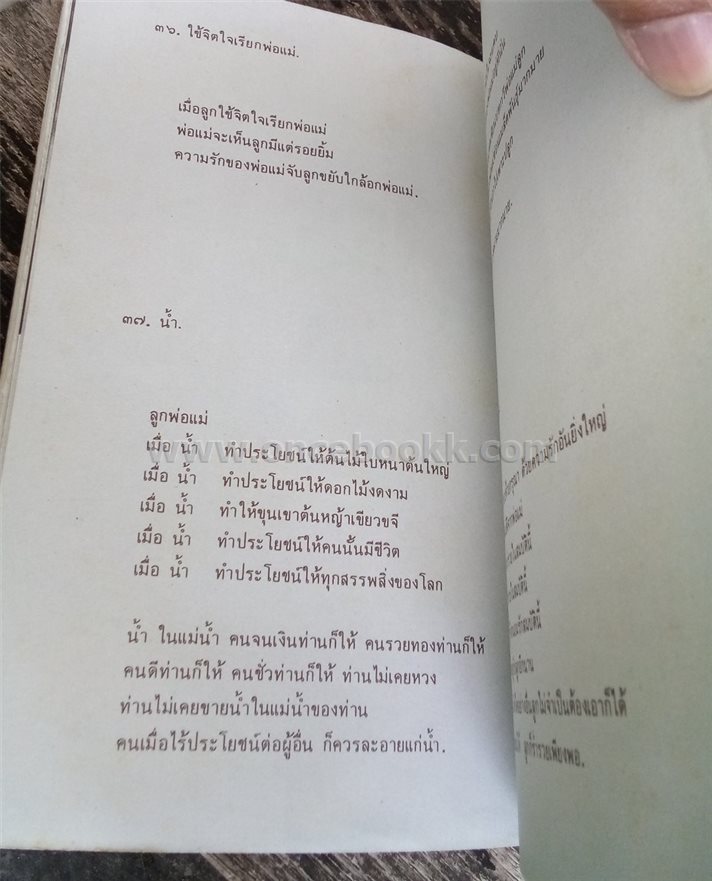 ๓๖. ใช้จิตใจเรียกพ่อแม่.
เมื่อลูกใช้จิตใจเรียกพ่อแม่
พ่อแม่จะเห็นลูกมีแต่รอยยิ้ม
ความรักของพ่อแม่จับลูกขยับใกล้อกพ่อแม่.
๓๗. น้ำ.
ลูกพ่อแม่
เมื่อ น้ำ ทำประโยชน์ให้ต้นไม้ใบหนาต้นใหญ่
เมื่อ น้ำ ทำประโยชน์ให้ดอกไม้งดงาม
เมื่อ น้ำ ทำให้ขุนเขาต้นหญ้าเขียวขจี
เมื่อ น้ำ ทำประโยชน์ให้คนนั้นมีชีวิต
เมื่อ น้ำ ทำประโยชน์ให้ทุกสรรพสิ่งของโลก
น้ำ ในแม่น้ำ คนจนเงินท่านก็ให้ คนรวยทองท่านก็ให้
คนดีท่านก็ให้ คนชั่วท่านก็ให้ ท่านไม่เคยหวง
ท่านไม่เคยขายน้ำในแม่น้ำของท่าน
คนเมื่อไร้ประโยชน์ต่อผู้อื่น ก็ควรละอายแก่น้ำ.
www.oncebookk.com
ด้วยความรักอันยิ่งใหญ่
ลูกไม่จำเป็นต้องเอาก็ได้
ลูกก็ร่ำรวยเพียงพอ.